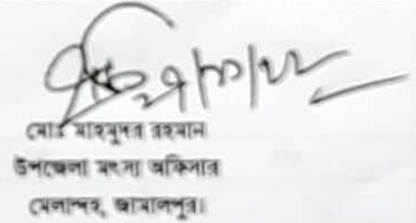 মোঃ মাহমুদুর রহমান
উপজেলা মৎস্য অফিসার
মেলান্দহ, জামালপুর।